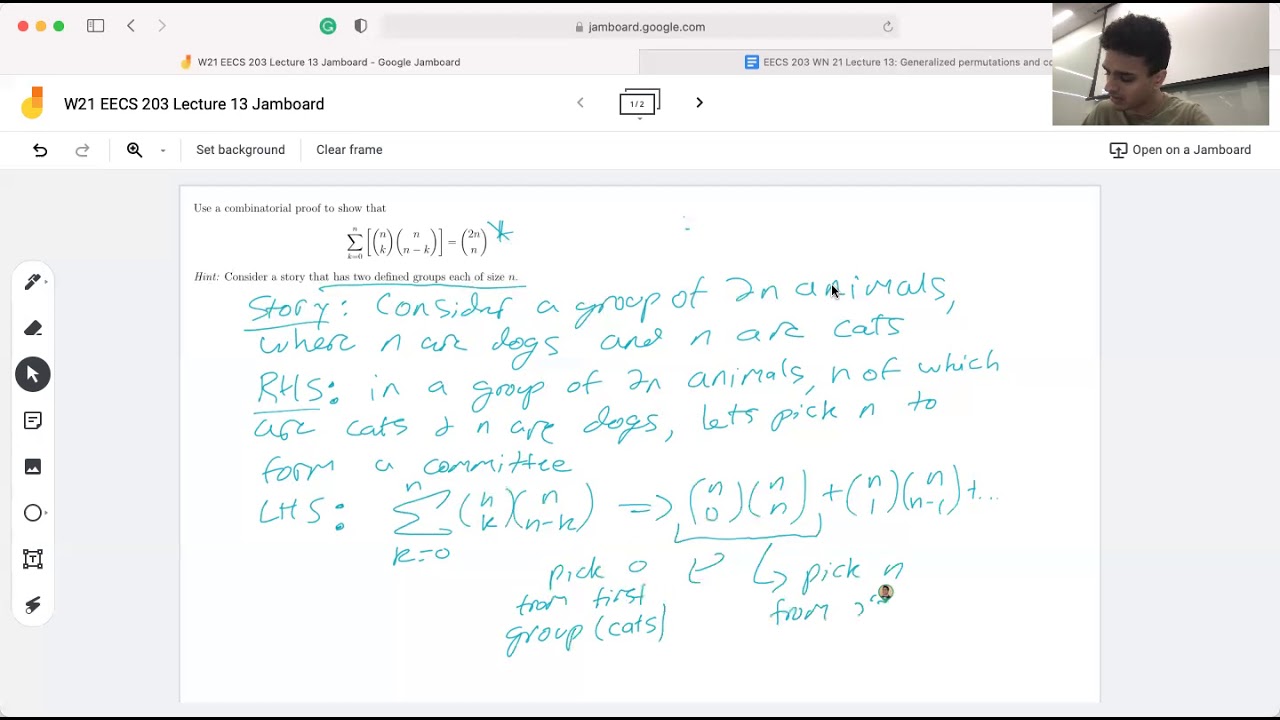 jamboard.google.com
W21 EECS 203 Lecture 13 Jamboard - Google Jamboard
EECS 203 WN 21 Lecture 13: Generalized permutations and co
W21 EECS 203 Lecture 13 Jamboard
1/2
Set background
Clear frame
Open on a Jamboard
Use a combinatorial proof to show that
\sum_{k=0}^{n} [\binom{n}{k}\binom{n}{n-k}] = \binom{2n}{n} *
Hint: Consider a story that has two defined groups each of size n.
Story: Consider a group of 2n animals,
where n are dogs and n are cats
RHS: in a group of 2n animals, n of which
are cats & n are dogs, lets pick n to
form a committee
LHS: \sum_{k=0}^{n} \binom{n}{k}\binom{n}{n-k} => \binom{n}{0}\binom{n}{n} + \binom{n}{1}\binom{n}{n-1} + ...
pick 0
from first
group (cats)
pick n
from